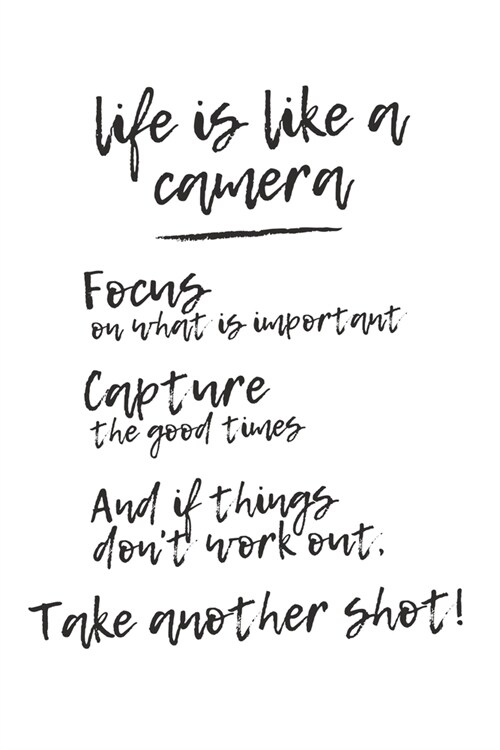 life is like a
camera
Focus
on what is important
Capture
the good times
And if things
don't work out,
Take another shot!